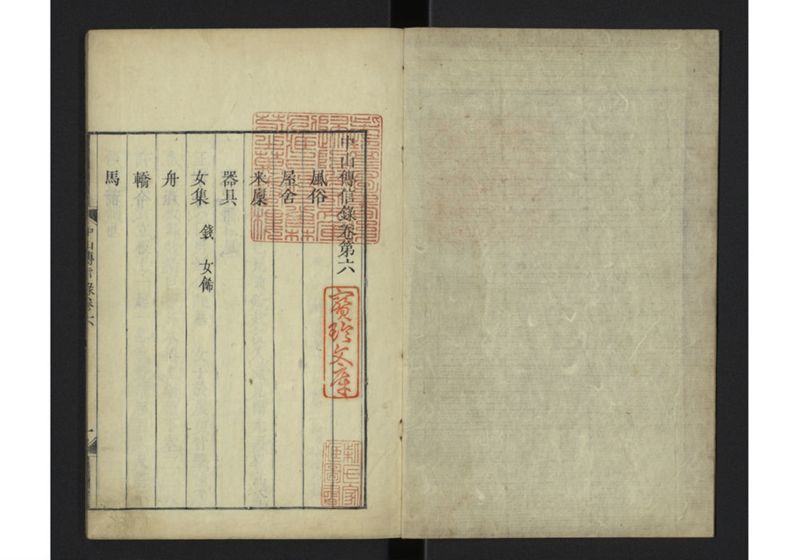 中山傳信錄卷第六
風俗
屋舍
米廩
器具
女集 錢 女飾
舟
轎
馬
中山傳信錄卷六
寶玲文庫